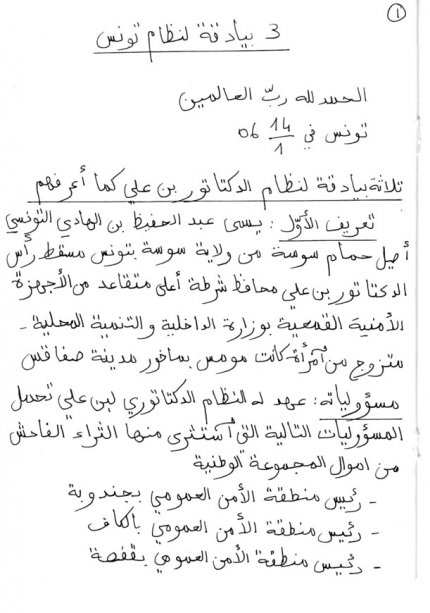 ①
3 بيادقة لنظام تونس
الحمد لله ربّ العالمين
تونس في 14/1 06
ثلاثة بيادقة لنظام الدكتاتور بن علي كما أعرفهم
تعريف الأوّل : يسمى عبد الحفيظ بن الهادي التونسي
أصيل حمام سوسة من ولاية سوسة بتونس مسقط رأس
الدكتاتور بن علي محافظ شرطة أعلى متقاعد من الأجهزة
الأمنية القمعية بوزارة الداخلية والتنمية المحلية -
متزوج من آمرأة كانت مومس بماخور مدينة صفاقس
مسؤولياته : عهد له النظام الدكتاتوري لبن علي تحمل
المسؤوليات التالية التي آستثرى منها الثراء الفاحش
من اموال المجموعة الوطنية
- رئيس منطقة الأمن العمومي بجندوبة
- رئيس منطقة الأمن العمومي بالكاف
- رئيس منطقة الأمن العمومي بقفصة